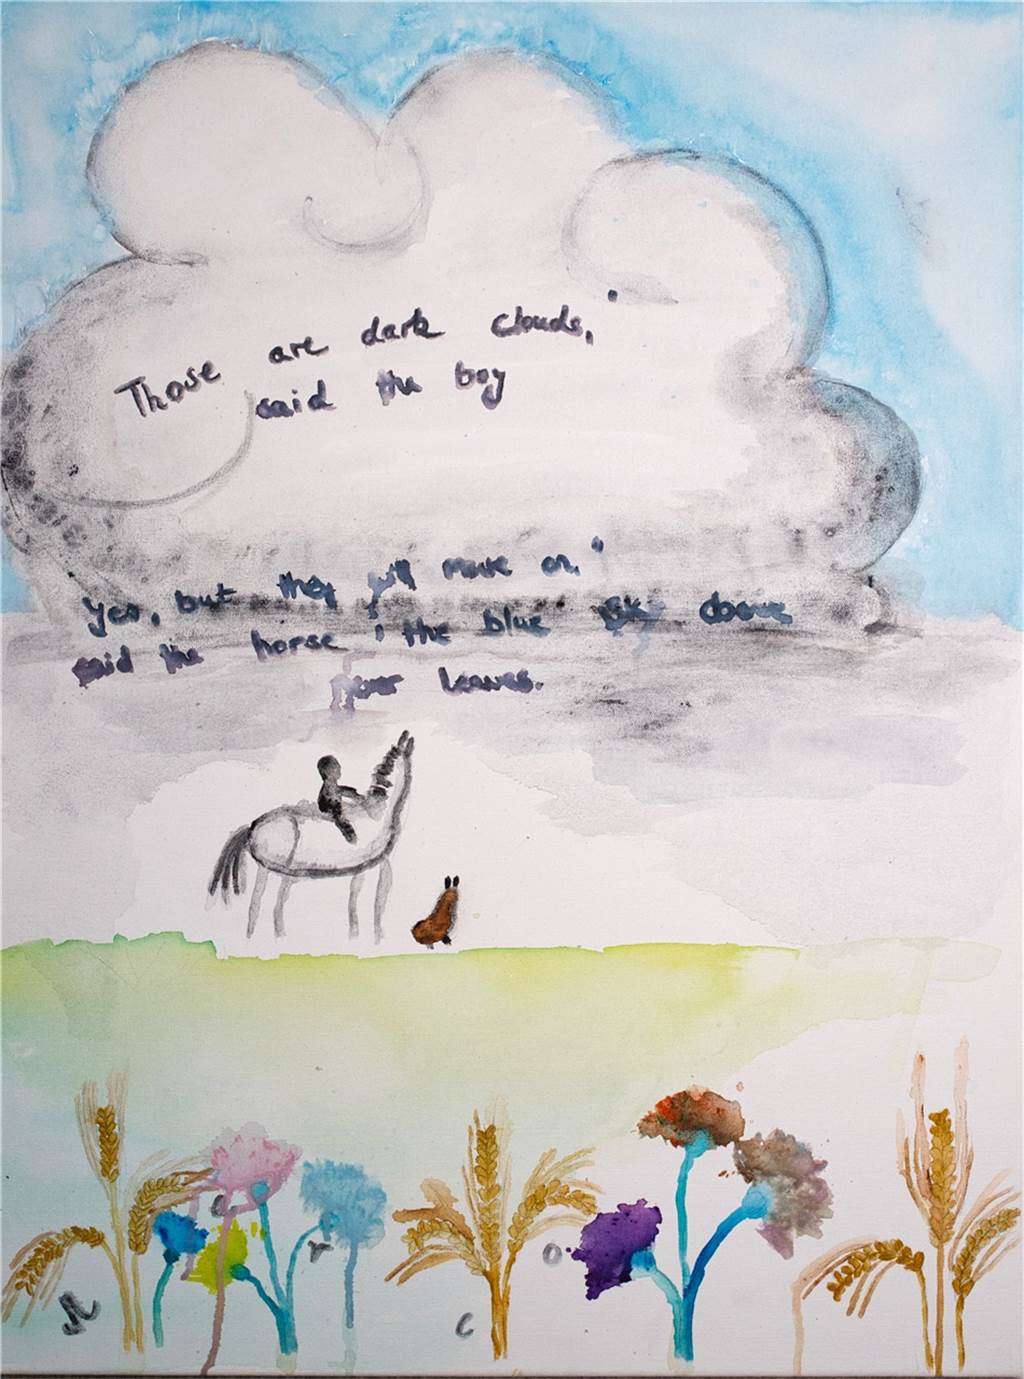 Those are dark clouds,'
said the boy
Yes, but they will move on,'
said the horse 'the blue sky above
never leaves.
M a r c o